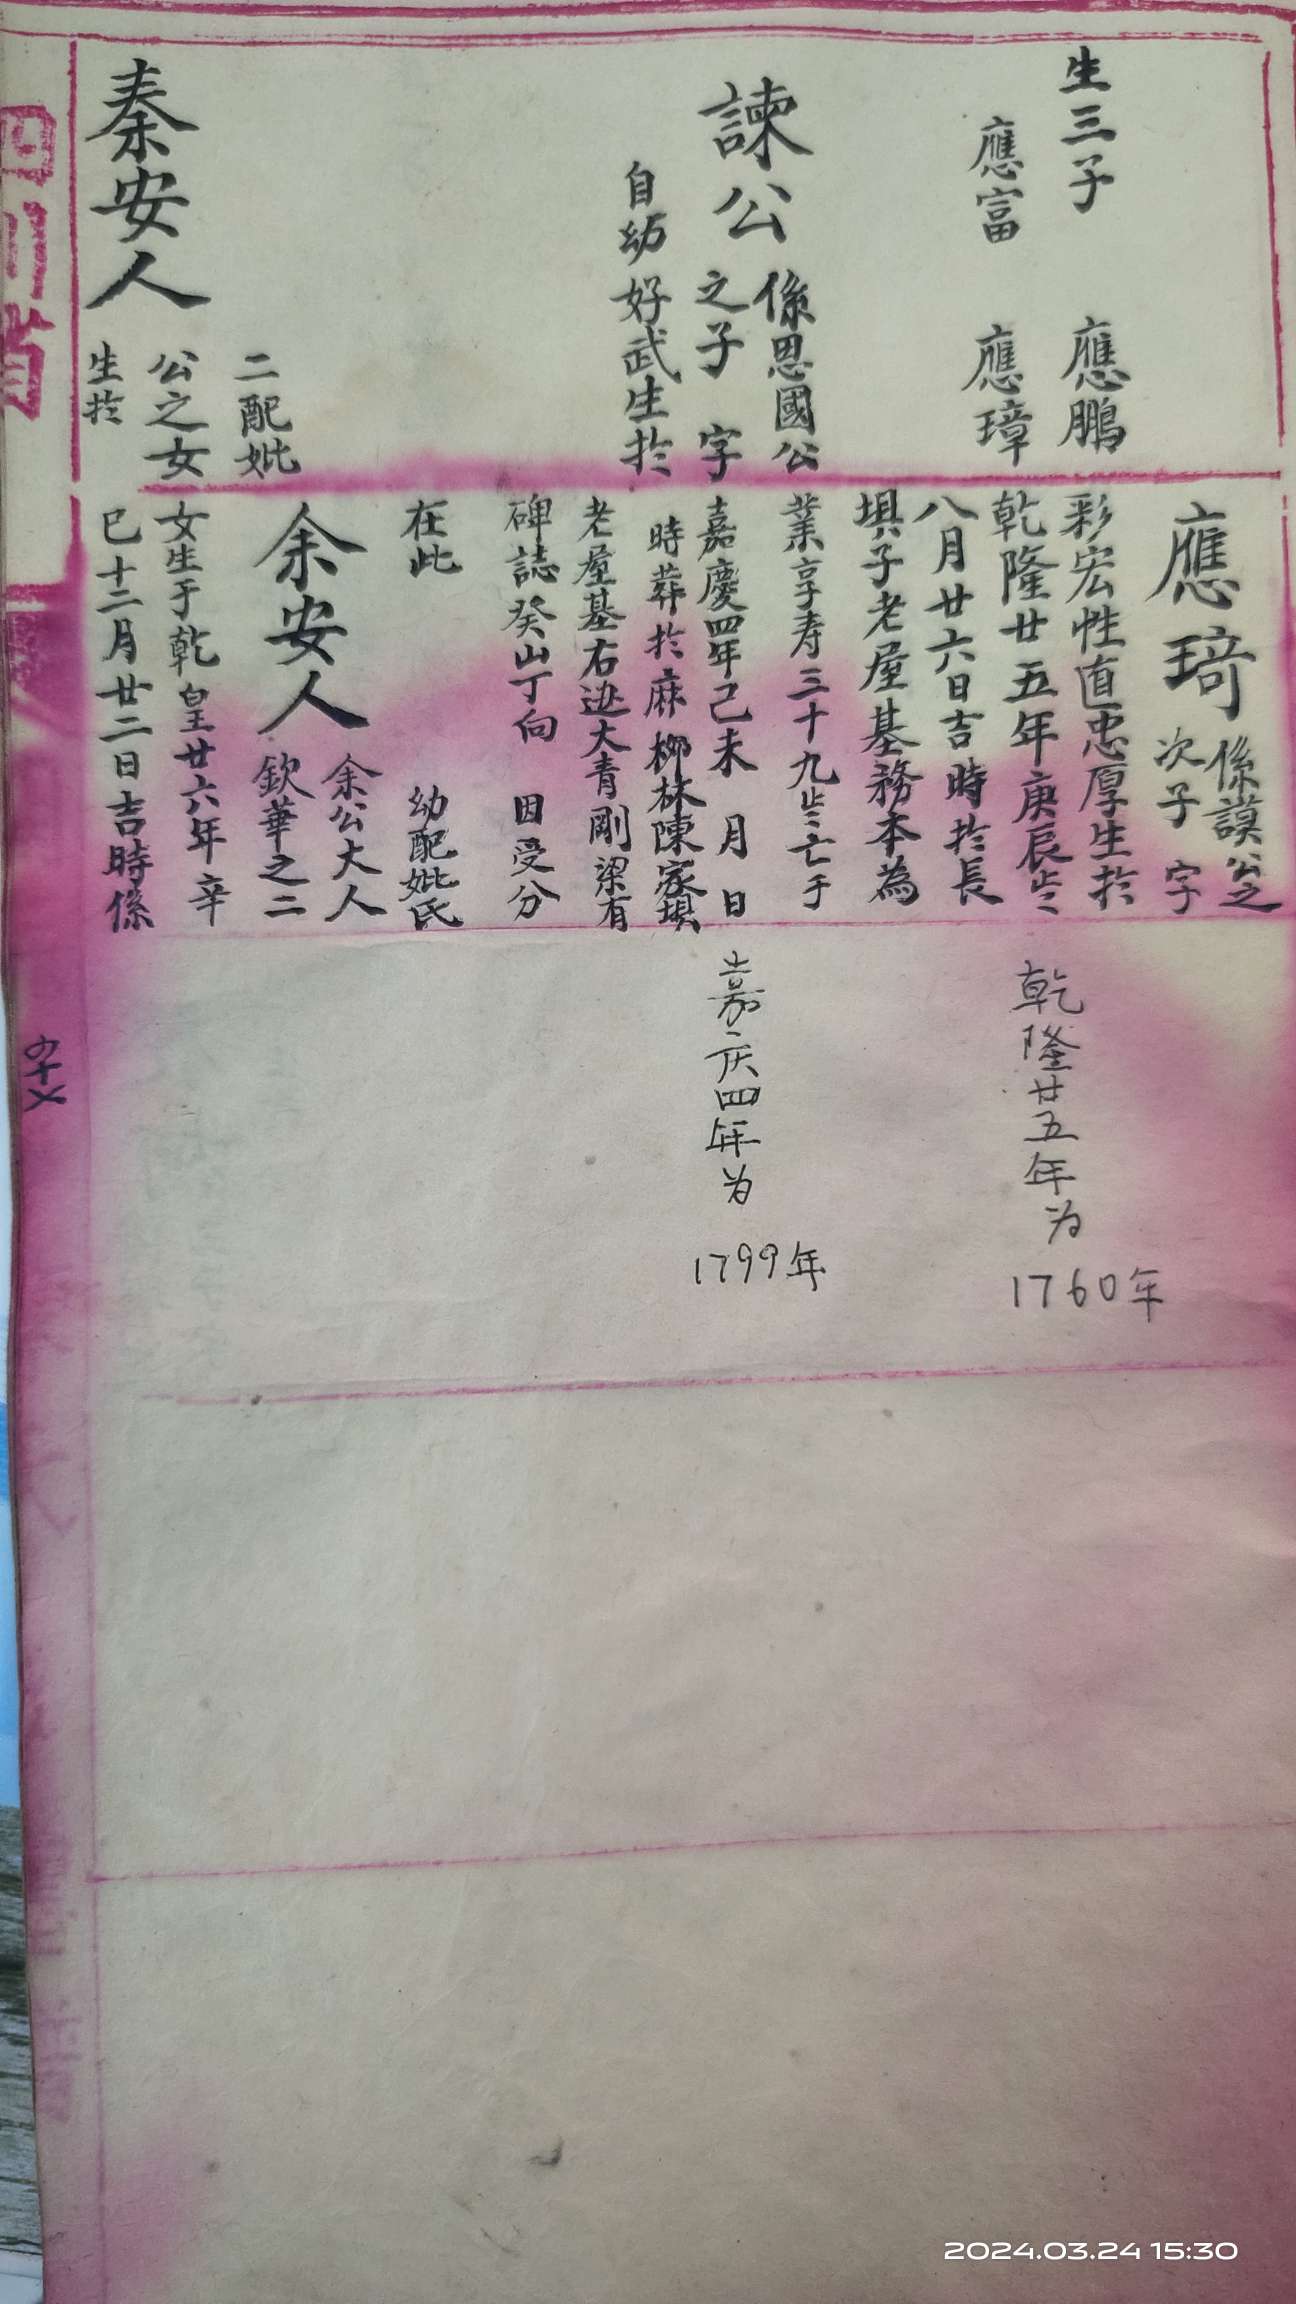 生三子 應鵬
應富 應璋
諫公
係恩國公
之子 字
自幼好武生於
二配妣
秦安人
公之女
生於
應琦
係謨公之
次子 字
彩宏性直忠厚生於
乾隆廿五年庚辰歲
八月廿六日吉時於長
埧子老屋基務本為
業享寿三十九歲亡于
嘉慶四年己未 月 日
時葬於麻柳林陳家埧
老屋基右边大青剛梁有
碑誌癸山丁向 因受分
在此 幼配妣氏
余安人
余公大人
欽華之二
女生于乾皇廿六年辛
巳十二月廿二日吉時係
乾隆廿五年为
1760年
嘉庆四年为
1799年
四川省
2024.03.24 15:30